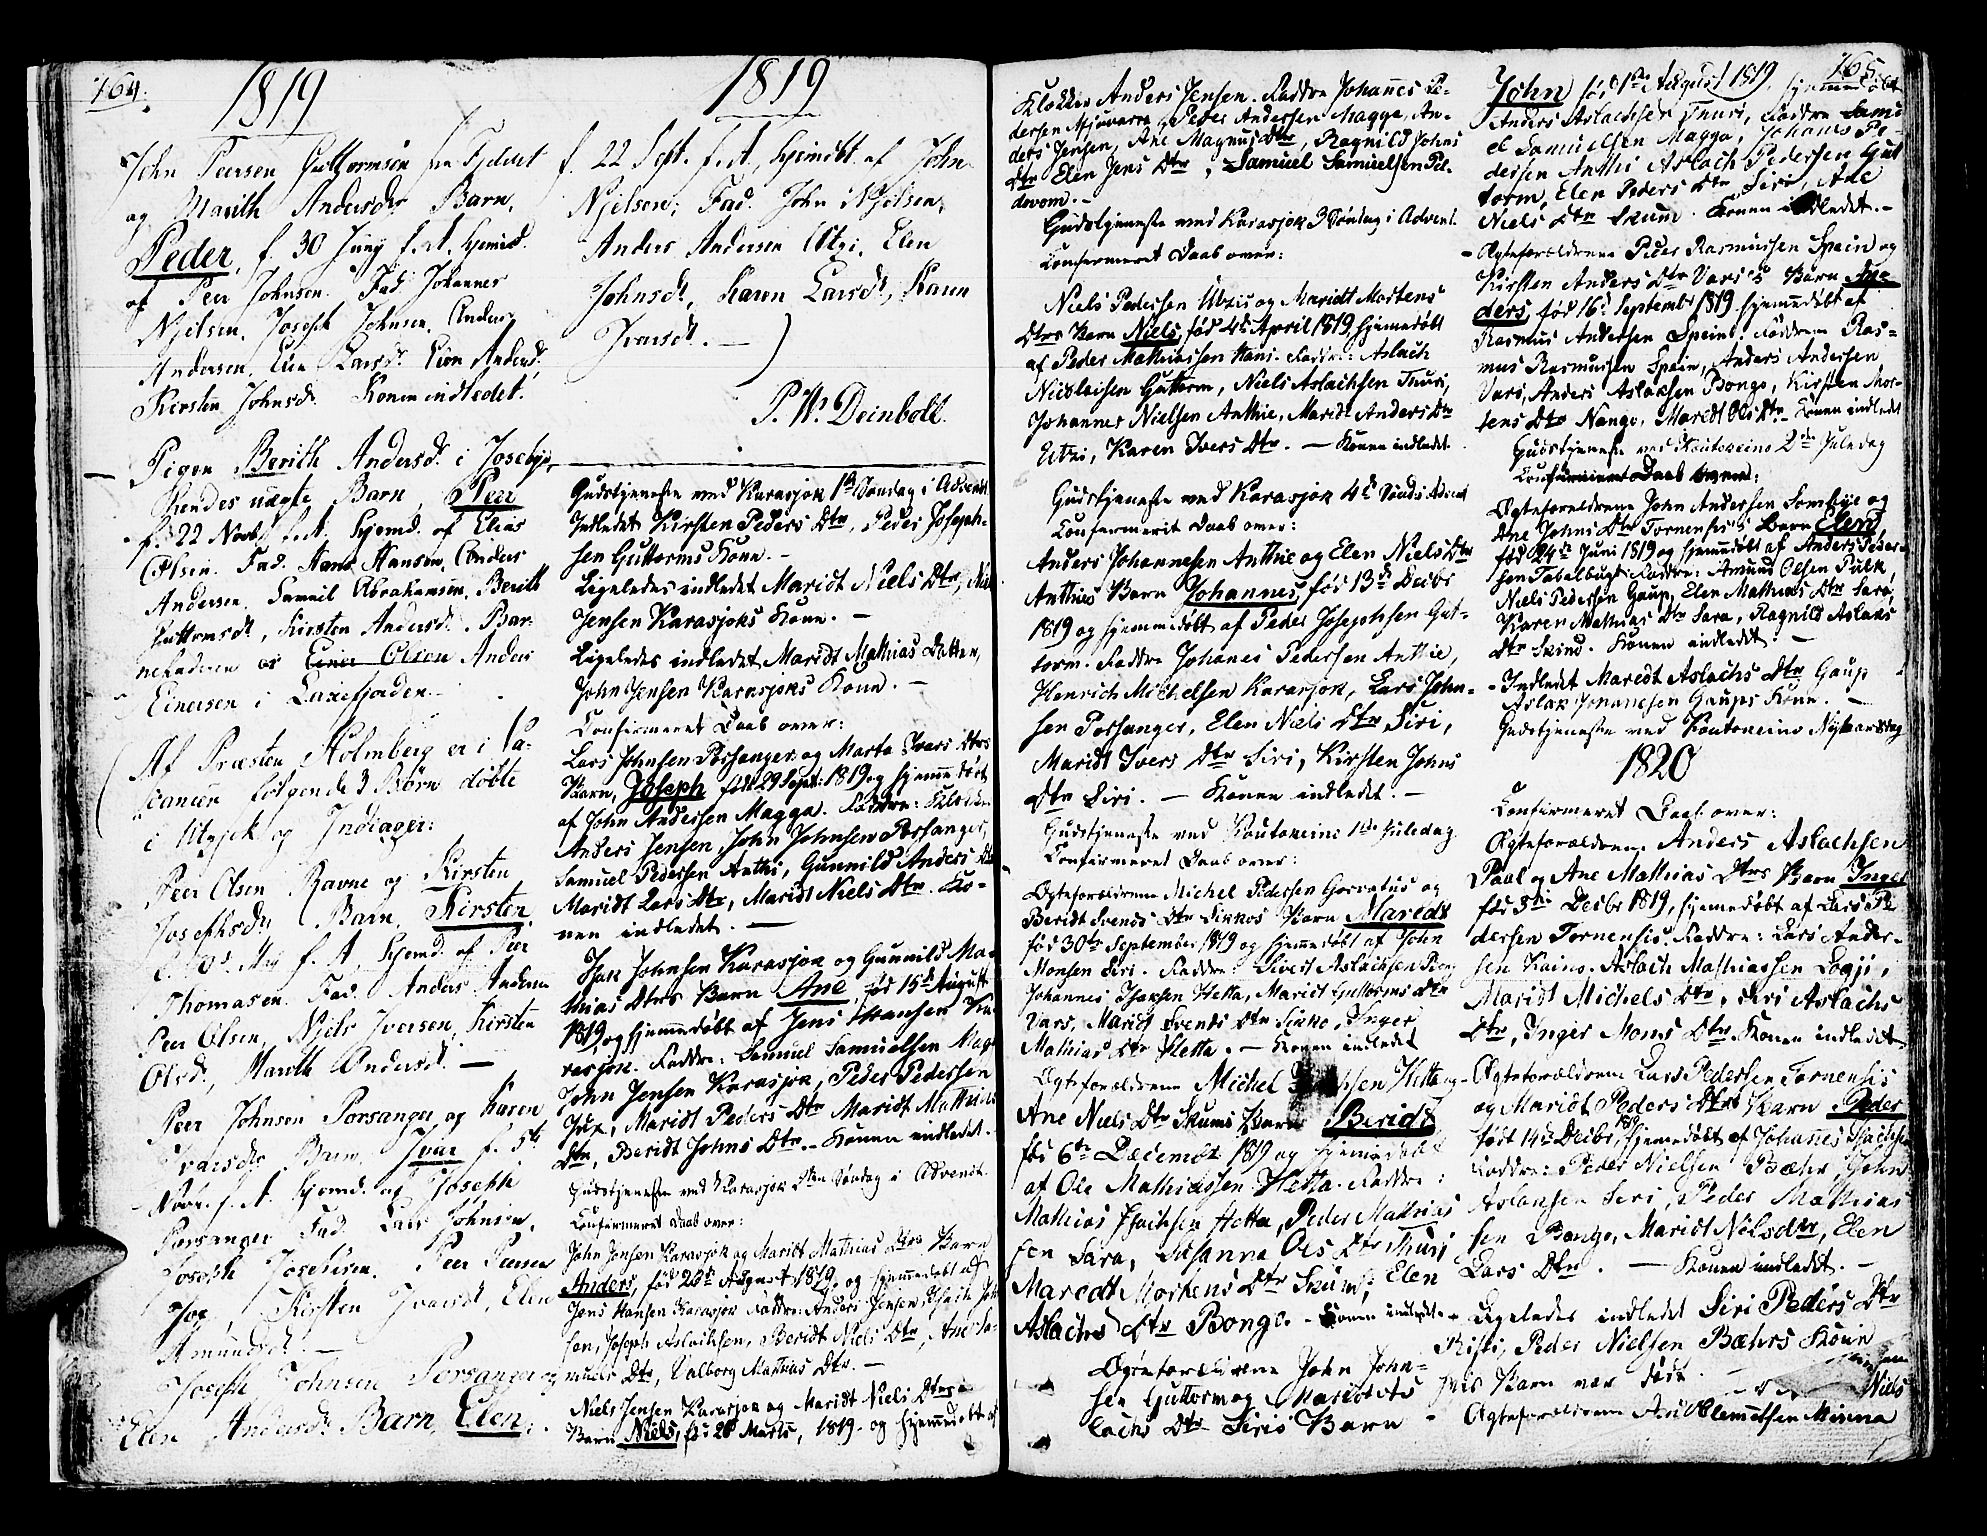 164.
1819
John Peersen Guttormsen fra Fjeldet
og Marith Andersdr Barn,
Peder, f. 30 Juny f. A. hjemd.
af Peer Johnsen. Fad. Johannes
Njelsen, Joseph Johnsen, Anders
Andersen, Elen Larsdr. Elen Andersdr.
Kirsten Johnsdr. Konen indledet.
Pigen Berith Andersd. i Josebye,
Hendes uægte Barn, Peer
f. 22 Novbr f. A. hjemd. af Elias
Olsen. Fad. Hans Hansen, Anders
Andersen. Samuel Abrahamsen, Berith
Guttormsdr, Kirsten Andersd. Bar-
nefaderen er Einer Olsen Anders
Einersen i Laxefjorden.
Af Præsten Holmberg er i Va-
cancen følgende 3 Børn døbte
i Utsjok og Indiager:
Peer Olsen Ravne og Kirsten
Josephsdr Barn, Kirsten
f. A. hjemd. af Peer
Thomasen. Fad. Anders Andersen
Peer Olsen, Njels Iversen, Kirsten
Olsd., Marith Andersd. —
Peer Johnsen Porsanger og Karen
Ivarsdr Barn, Ivar f. 5te
Novbr. f. A. hjemd. af Joseph
Porsanger Fad. Lars Johnsen,
Joseph Josephsen. Peer Peersen
Jox, Kirsten Ivarsd., Elen
Amundsd. —
Joseph Johnsen Porsanger og
Elen Andersdr Barn, Elen,
1819
f. 22 Sept. f. A., hjemdbt. af John
Njelsen; Fad. John Njelsen,
Anders Andersen Utzi, Elen
Johnsd., Karen Larsdr, Karen
Ivarsd. — )
P. W. Deinboll.
Gudstjeneste med Karasjok 1te Søndag i Advent.
Indledet Kirsten Peders Dtr, Peder Joseph-
sen Guttorms Kone. —
Ligeledes indledet Maridt Niels Dtr, Niels
Jensen Karasjoks Kone. —
Ligeledes indledet Maridt Mathias Datter,
John Jensen Karasjoks Kone. —
Confirmeret Daab over:
Lars Johnsen Porsanger og Marta Ivars Dtrs
Barn, Joseph født 29 Sept: 1819 og hjemmedøbt
af John Andersen Magga. Faddre: Klokker
Anders Jensen, John Johnsen Porsanger,
Samuel Pedersen Anthi, Gunnild Anders Dtr
Maridt Lars Dtr, Maridt Niels Dtr. Ko-
nen indledet. —
Isak Johnsen Karasjok og Gunnild Mat-
thias Dtrs Barn Ane, fød 15de August
1819, og hjemmedøbt af Jens Hansen Ka-
rasjok. Faddre: Samuel Samuelsen Magga
John Jensen Karasjok, Peder Pedersen
Jox, Maridt Peders Dtr Maridt Matthias
Dtr, Beridt Johns Dtr. — Konen indledet.
Gudstjeneste med Karasjok 2den Søndag i Advent.
Confirmeret Daab over:
John Jensen Karasjok og Maridt Mathias Dtrs Barn
Anders, fød 20de August 1819 og hjemmedøbt af
Jens Hansen Karasjok Faddre: Anders Jensen, Isach John
sen, Joseph Aslachsen, Beridt Niels Dtr, Ane Sa-
muels Dtr, Valborg Mathias Dtr. —
Niels Jensen Karasjok og Maridt Niels Dtrs
Barn Niels, fød 28 Marts, 1819 og hjemmedøbt af
Klokker Anders Jensen. Faddre Johannes Pe-
dersen Njuvarre, Peder Andersen Magga, An-
ders Jensen, Ane Magnus Dtr, Ragnild Johns
Dtr Elen Jens Dtr, Samuel Samuelsen Pel-
dovom. —
Gudstjeneste med Karasjok 3 Søndag i Advent.
Confirmeret Daab over:
Niels Pedersen Utzis og Maridt Mortens
Dtrs Barn Niels, fød 4de April 1819, hjemmedøbt
af Peder Mathiassen Hans. Faddre: Aslach
Nicolaisen Guttorm, Niels Aslachsen Thuri,
Johannes Nielsen Anthie, Maridt Anders Dtr
Utzi, Karen Ivers Dtr. — Konen indledet.
Gudstjeneste med Karasjok 4de Sønd: i Advent
Confirmerit Daab over:
Anders Johannesen Anthie og Elen Niels Dtr
Anthies Barn Johannes, fød 13de Decbr
1819 og hjemmedøbt af Peder Josephsen Gut-
torm. Faddre Johanes Pedersen Anthie,
Henrich Michelsen Karasjok, Lars John-
sen Porsanger, Elen Niels Dtr Siri,
Maridt Ivers Dtr Siri, Kirsten Johns
Dtr Siri. — Konen indledet. —
Gudstjeneste med Koutokeino 1ste Juledag
Confirmeret Daab over:
Ægteforældrene Michel Pedersen Gorvatus og
Beridt Svends Dtr Sikkos Barn Maridt
fød 30te September 1819 og hjemmedøbt af John
Monsen Siri. Faddre: Sivert Aslachsen
Johannes Isaksen Hetta, Maridt Guttorms Dtr
Vars, Maridt Svends Dtr Sikko, Inger
Mathias Dtr Hetta. — Konen indledet
Ægteforældrene Michel Hetta og
Ane Niels Dtr Skums Barn Beridt
fød 6te December 1819 og hjemmedøbt
af Ole Mathiassen Hetta. Faddre:
Mathias Isachsen Hetta, Peder Mathias
sen Sara, Susanna Ols Dtr Thuri
Maredt Mortens Dtr Skum, Elen
Aslachs Dtr Bongo. — Konen indledet.
Ægteforældrene John John-
sen Guttorm og Maridt As
lachs Dtr Siris Barn
165.
John fød 1ste August 1819, hjemmedøbt
Anders Aslachsen Thuri, Faddre Samu
el Samuelsen Magga, Johanes Pe-
dersen Anthi Aslach Pedersen Gut
torm, Elen Peders Dtr Siri, Ane
Niels Dtr Skum. Konen indledet. —
Ægteforældrene Peder Rasmussen Spein og
Kirsten Anders Dtr Vars's Barn An-
ders, fød 16de September 1819 hjemmedøbt af
Rasmus Andersen Spein. Faddrene Ras-
mus Rasmussen Spein, Anders Andersen
Vars, Anders Aslaksen Bongo, Kirsten Mor-
tens Dtr Nango, Maredt Ols Dtr. — Konen indledet
Gudstjeneste med Koutokeino 2den Juledag
Confirmeret Daab over:
Ægteforældrene John Andersen Sombye og
Ane Johns Dtr Tornensis's Barn Elen
fød 24de Juni 1819 og hjemmedøbt af Anders Peder
sen Faddre: Amund Olsen Pulk,
Niels Pedersen Gaup, Elen Mathias Dtr Sara,
Karen Mathias Dtr Sara, Ragnild Aslaks
Dtr Skind. Konen indledet. —
Indledet Maredt Aslachs Dtr Gaup
Aslak Johannesen Gaups Kone. —
Gudstjeneste med Koutokeino Nytaarsdag
1820
Confirmeret Daab over:
Ægteforældrene Anders Aslachsen
Paal og Ane Mathias Dtrs Barn Inger
fød 3die Decbr 1819, hjemmedøbt af Lars Pe
dersen Tornensis. Faddre: Lars Ander-
sen Kaino, Aslach Mathiassen Logji,
Maridt Michels Dtr, Siri Aslachs
Dtr, Inger Mons Dtr. Konen indledet.
Ægteforældrene Lars Pedersen Tornensis
og Maridt Peders Dtrs Barn Peder
født 14de Decbr, 1819 hjemmedøbt af Johanes Isachsen
Faddre: Peder Nielsen Bæhr, John
Aslansen Siri, Peder Mathias
sen Bongo, Maridt Nilsdtr, Elen
Lars Dtr. — Konen indledet. —
Ligeledes indledet Siri Peders Dtr
Risti, Peder Nielsen Bæhrs Kone
hvis Barn var død. —
Niels
Ægteforældrene Clemetsen Minna